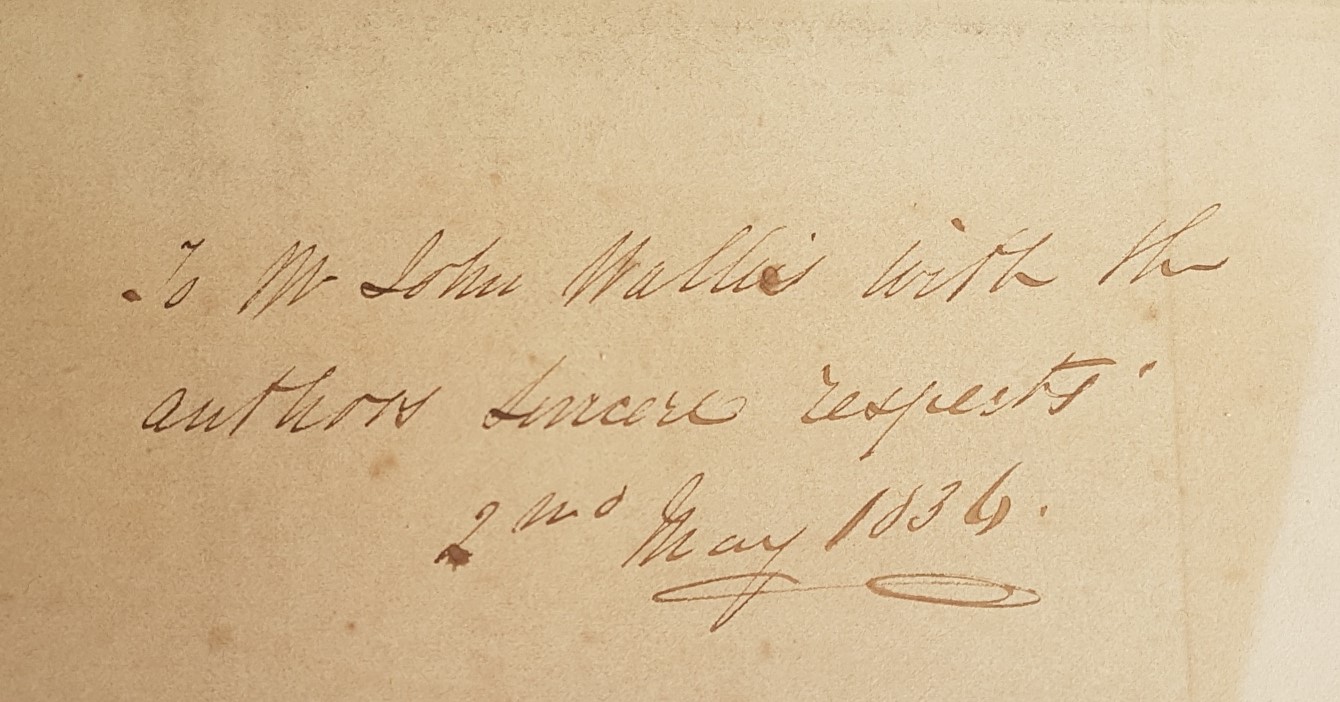 To Mr John Wallis with the
authors sincere respects
2nd May 1836.